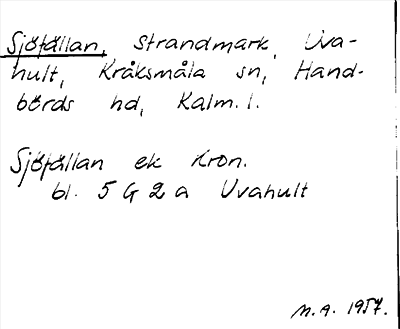 Sjöfällan, strandmark, Uva-
hult, Kråksmåla sn, Hand-
börds hd, Kalm. l.
Sjöfällan ek Kron.
bl. 5 G 2 a Uvahult
M.A. 1957.